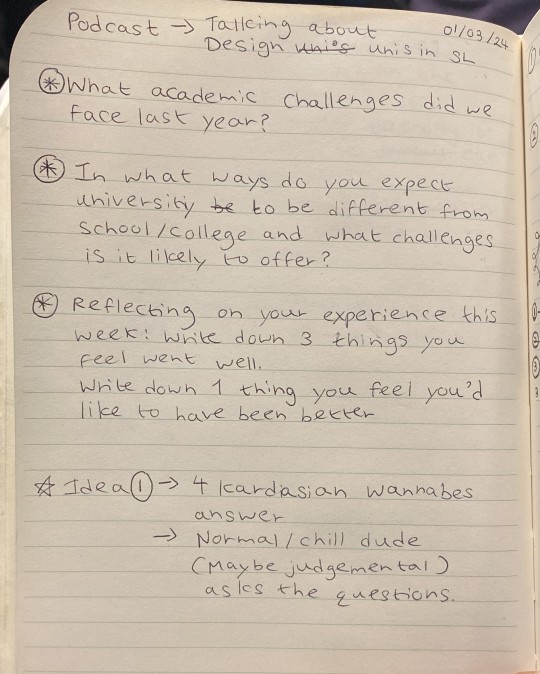 Podcast → Talking about 01/03/24
Design uni's unis in SL
* What academic challenges did we
face last year?
* In what ways do you expect
university be to be different from
school/college and what challenges
is it likely to offer?
* Reflecting on your experience this
week: write down 3 things you
feel went well.
Write down 1 thing you feel you'd
like to have been better
☆ Idea ① → 4 kardasian wannabes
answer
→ Normal/chill dude
(Maybe judgemental)
asks the questions.